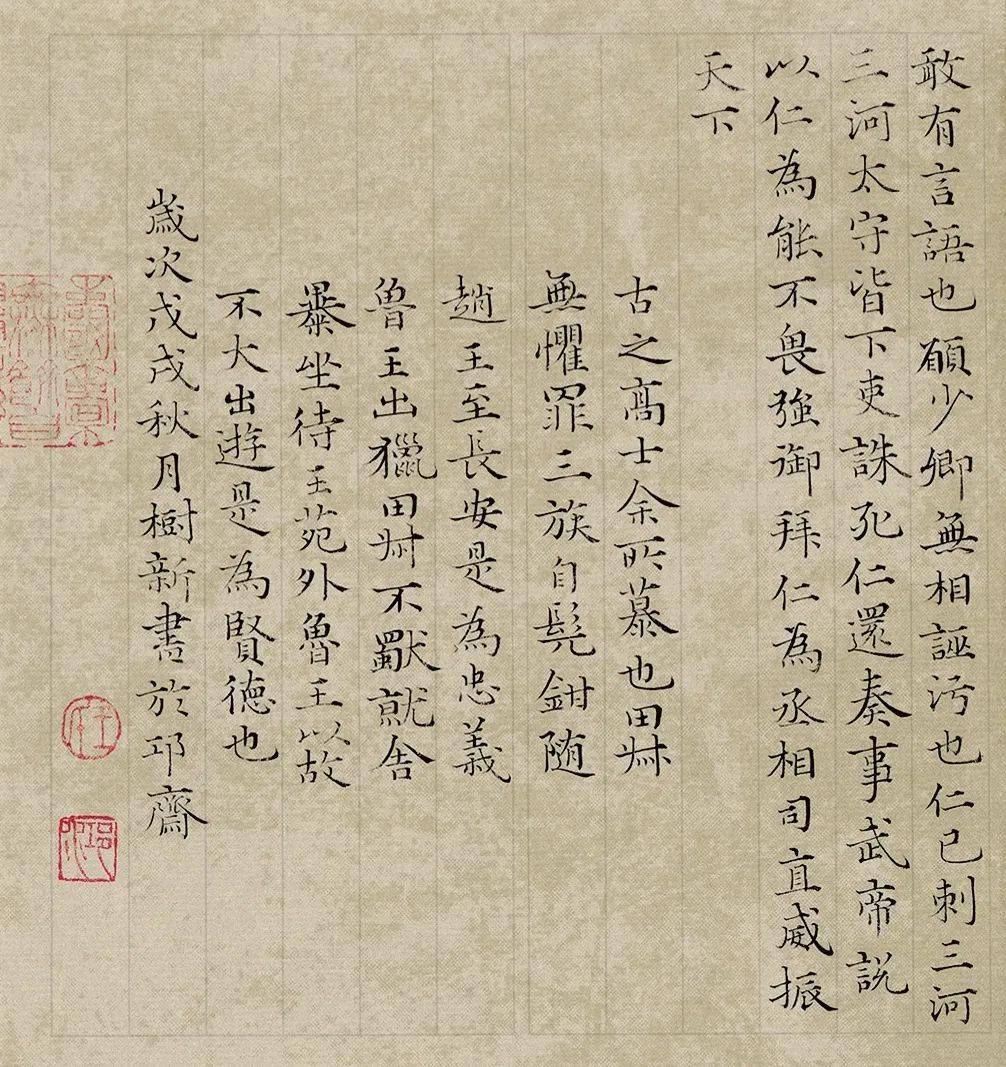 敢有言語也願少卿無相誣污也仁已刺三河
三河太守皆下吏誅死仁還奏事武帝説
以仁為能不畏強御拜仁為丞相司直威振
天下
古之高士余所慕也田叔
無懼罪三族自髡鉗随
趙王至長安是為忠義
魯王出獵田叔不獸就舍
暴坐待王苑外魯王以故
不大出遊是為賢德也
歲次戊戌秋月樹新書於邱齋